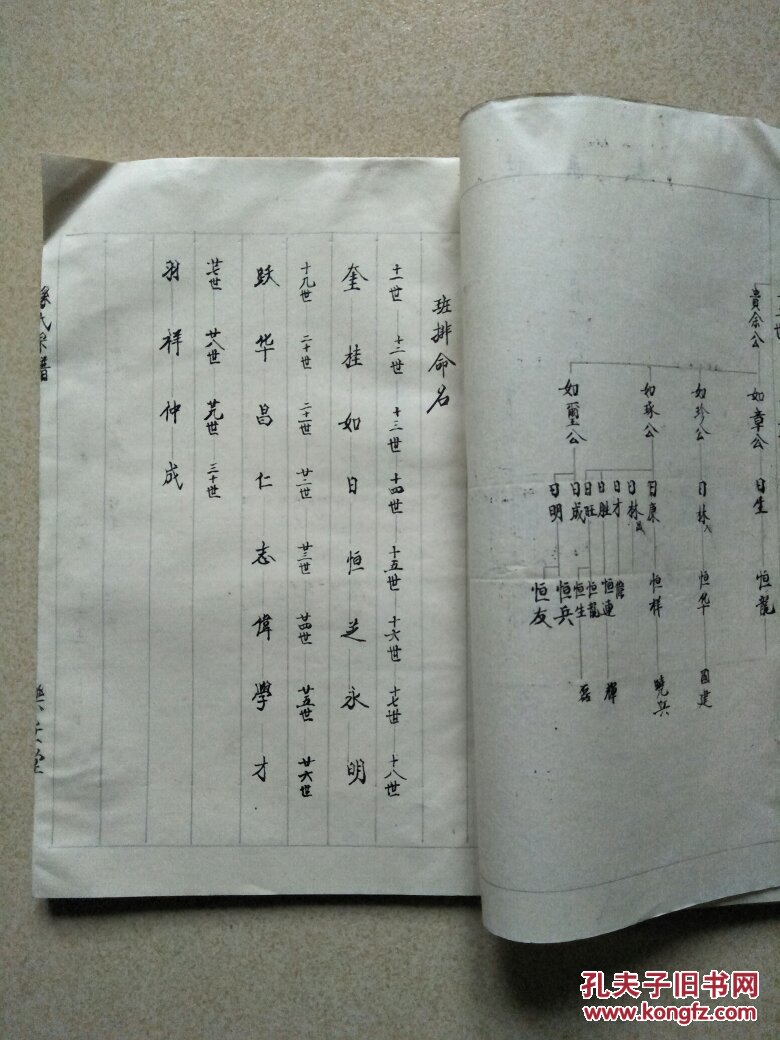 班排命名
十一世 十二世 十三世 十四世 十五世 十六世 十七世 十八世
奎 桂 如 日 恒 芝 永 明
十九世 二十世 二十一世 廿二世 廿三世 廿四世 廿五世 廿六世
跃 华 昌 仁 志 偉 學 才
廿七世 廿八世 廿九世 三十世
羽 祥 仲 成
氏宗譜
堂
貴余公
如章公 如珍公 如琢公 如璽公
日生 日林 日康 日林 日才 日胜 日旺 日成 日明
恒龍 恒华 恒祥 恒連 恒龍 恒生 恒兵 恒友
国建 曉兵 輝 磊
孔夫子旧书网
www.kongfz.com